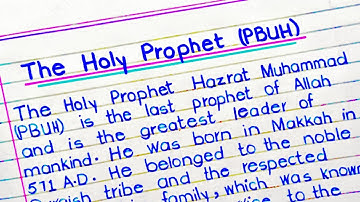 The Holy Prophet (PBUH)
The Holy Prophet Hazrat Muhammad
(PBUH) is the last prophet of Allah
and is the greatest leader of
mankind. He was born in Makkah in
571 A.D. He belonged to the noble
Quraish tribe and the respected
family, which was known
to the